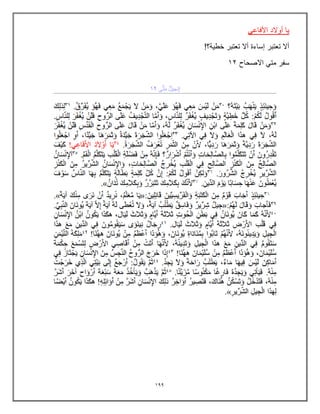 يا أولاد الأفاعي
ألا تعتبر إساءة ألا تعتبر خطية؟!
سفر متي الاصحاح ١٢
إنجيل متى ١٢
وَحِينَئِذٍ يَنْهَبُ بَيْتَهُ؟ مَنْ لَيْسَ مَعِي فَهُوَ عَلَيَّ، وَمَنْ لاَ يَجْمَعُ مَعِي فَهُوَ يُفَرِّقُ. لِذلِكَ
أَقُولُ لَكُمْ: كُلُّ خَطِيَّةٍ وَتَجْدِيفٍ يُغْفَرُ لِلنَّاسِ، وَأَمَّا التَّجْدِيفُ عَلَى الرُّوحِ فَلَنْ يُغْفَرَ لِلنَّاسِ.
وَمَنْ قَالَ كَلِمَةً عَلَى ابْنِ الإِنْسَانِ يُغْفَرُ لَهُ، وَأَمَّا مَنْ قَالَ عَلَى الرُّوحِ الْقُدُسِ فَلَنْ يُغْفَرَ
لَهُ، لاَ فِي هذَا الْعَالَمِ وَلاَ فِي الآتِي. اِجْعَلُوا الشَّجَرَةَ جَيِّدَةً وَثَمَرَهَا جَيِّدًا، أَوِ اجْعَلُوا
الشَّجَرَةَ رَدِيَّةً وَثَمَرَهَا رَدِيًّا، لأَنْ مِنَ الثَّمَرِ تُعْرَفُ الشَّجَرَةُ. يَا أَوْلاَدَ الأَفَاعِي! كَيْفَ
تَقْدِرُونَ أَنْ تَتَكَلَّمُوا بِالصَّالِحَاتِ وَأَنْتُمْ أَشْرَارٌ؟ فَإِنَّهُ مِنْ فَضْلَةِ الْقَلْبِ يَتَكَلَّمُ الْفَمُ. اَلإِنْسَانُ
الصَّالِحُ مِنَ الْكَنْزِ الصَّالِحِ فِي الْقَلْبِ يُخْرِجُ الصَّالِحَاتِ، وَالإِنْسَانُ الشِّرِّيرُ مِنَ الْكَنْزِ
الشِّرِّيرِ يُخْرِجُ الشُّرُورَ. وَلكِنْ أَقُولُ لَكُمْ: إِنَّ كُلَّ كَلِمَةٍ بَطَّالَةٍ يَتَكَلَّمُ بِهَا النَّاسُ سَوْفَ
يُعْطُونَ عَنْهَا حِسَابًا يَوْمَ الدِّينِ. لأَنَّكَ بِكَلاَمِكَ تَتَبَرَّرُ وَبِكَلاَمِكَ تُدَانُ».
حِينَئِذٍ أَجَابَ قَوْمٌ مِنَ الْكَتَبَةِ وَالْفَرِّيسِيِّينَ قَائِلِينَ:«يَا مُعَلِّمُ، نُرِيدُ أَنْ نَرَى مِنْكَ آيَةً».
فَأَجابَ وَقَالَ لَهُمْ:«جِيلٌ شِرِّيرٌ وَفَاسِقٌ يَطْلُبُ آيَةً، وَلاَ تُعْطَى لَهُ آيَةٌ إِلاَّ آيَةَ يُونَانَ النَّبِيِّ.
لأَنَّهُ كَمَا كَانَ يُونَانُ فِي بَطْنِ الْحُوتِ ثَلاَثَةَ أَيَّامٍ وَثَلاَثَ لَيَال، هكَذَا يَكُونُ ابْنُ الإِنْسَانِ
فِي قَلْب الأَرْضِ ثَلاَثَةَ أَيَّامٍ وَثَلاَثَ لَيَال. رِجَالُ نِينَوَى سَيَقُومُونَ فِي الدِّينِ مَعَ هذَا
الْجِيلِ وَيَدِينُونَهُ، لأَنَّهُمْ تَابُوا بِمُنَادَاةِ يُونَانَ، وَهُوَذَا أَعْظَمُ مِنْ يُونَانَ ههُنَا! مَلِكَةُ التَّيْمَنِ
سَتَقُومُ فِي الدِّينِ مَعَ هذَا الْجِيلِ وَتَدِينُهُ، لأَنَّهَا أَتَتْ مِنْ أَقَاصِي الأَرْضِ لِتَسْمَعَ حِكْمَةَ
سُلَيْمَانَ، وَهُوَذَا أَعْظَمُ مِنْ سُلَيْمَانَ ههُنَا! إِذَا خَرَجَ الرُّوحُ النَّجِسُ مِنَ الإِنْسَانِ يَجْتَازُ فِي
أَمَاكِنَ لَيْسَ فِيهَا مَاءٌ، يَطْلُبُ رَاحَةً وَلاَ يَجِدُ. ثُمَّ يَقُولُ: أَرْجِعُ إِلَى بَيْتِي الَّذِي خَرَجْتُ
مِنْهُ. فَيَأْتِي وَيَجِدُهُ فَارِغًا مَكْنُوسًا مُزَيَّنًا. ثُمَّ يَذْهَبُ وَيَأْخُذُ مَعَهُ سَبْعَةَ أَرْوَاحٍ أُخَرَ أَشَرَّ
مِنْهُ، فَتَدْخُلُ وَتَسْكُنُ هُنَاكَ، فَتَصِيرُ أَوَاخِرُ ذلِكَ الإِنْسَانِ أَشَرَّ مِنْ أَوَائِلِهِ! هكَذَا يَكُونُ أَيْضًا
لِهذَا الْجِيلِ الشَّرِّيرِ».